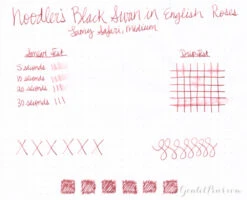 Noodler's Black Swan in English Roses
Lamy Safari, Medium
Smear Test
Drip Test
5 seconds
10 seconds
20 seconds
30 seconds
X X X X X X
GouletPens.com